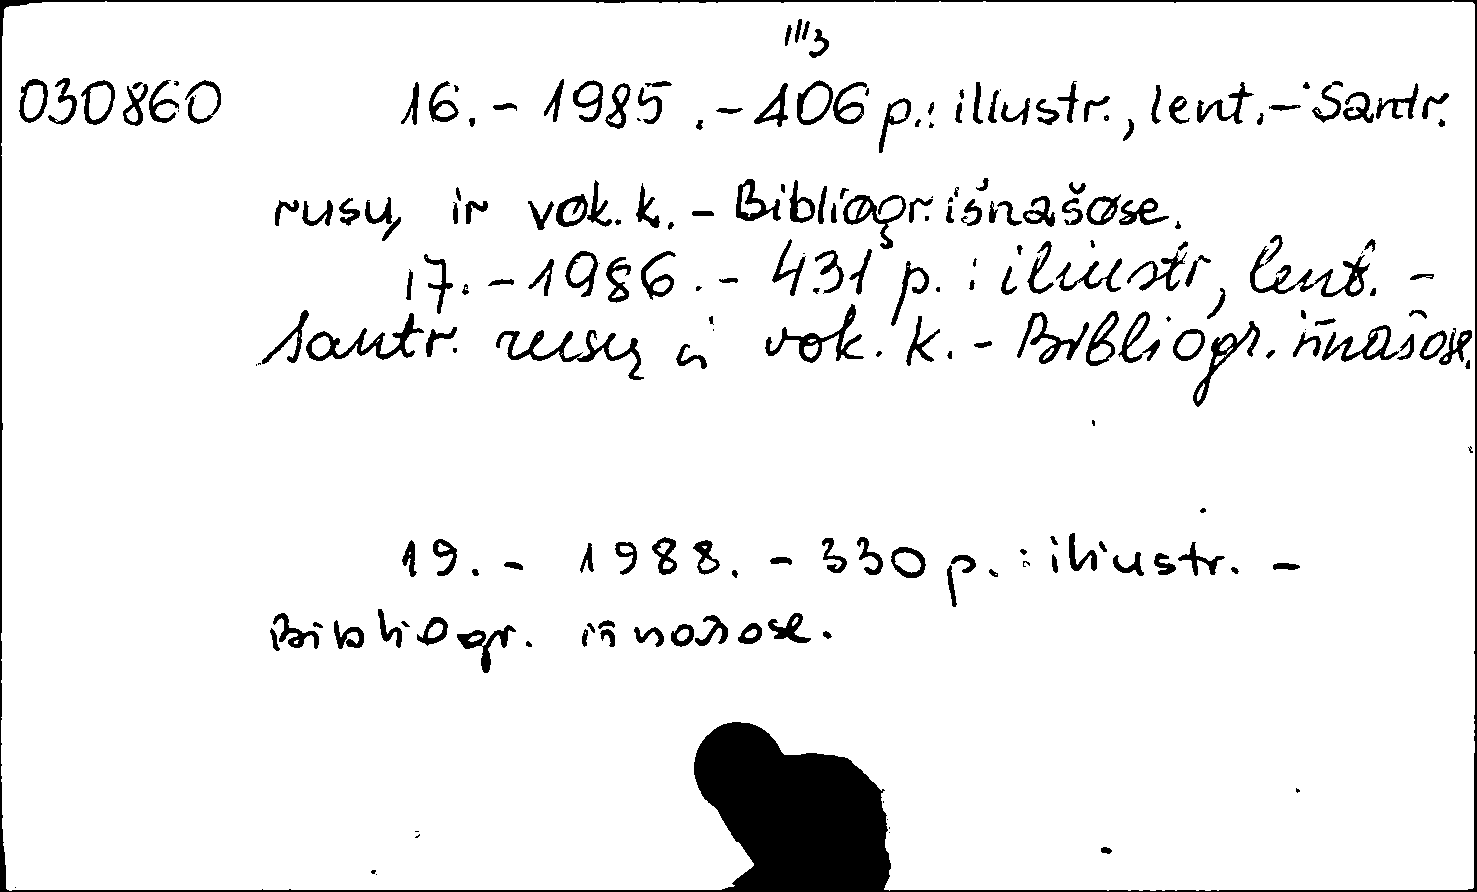 III3
030860 16. - 1985. - 406 p.: illustr., lent. - Santr.
rusų ir vok. k. - Bibliogr. išnašose.
17. - 1986. - 431 p. : iliustr, lent. -
Santr. rusų ir vok. k. - Bibliogr. išnašose.
19. - 1988. - 330 p. : iliustr. -
Bibliogr. išnašose.